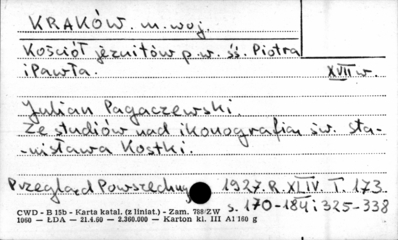 KRAKÓW. m. woj.
Kościół jezuitów p.w. śś. Piotra
i Pawła. XVII w.
Julian Pagaczewski.
Ze studiów nad ikonografią św. Sta-
-nisława Kostki.
Przegląd Powszechny 1927. R. XLIV. T. 173.
s. 170-184 i 325-338
CWD - B 15b - Karta katal. (z liniat.) - Zam. 788/ZW
1960 — ŁDA — 21.4.60 — 2.360.000 — Karton kl. III A1 160 g